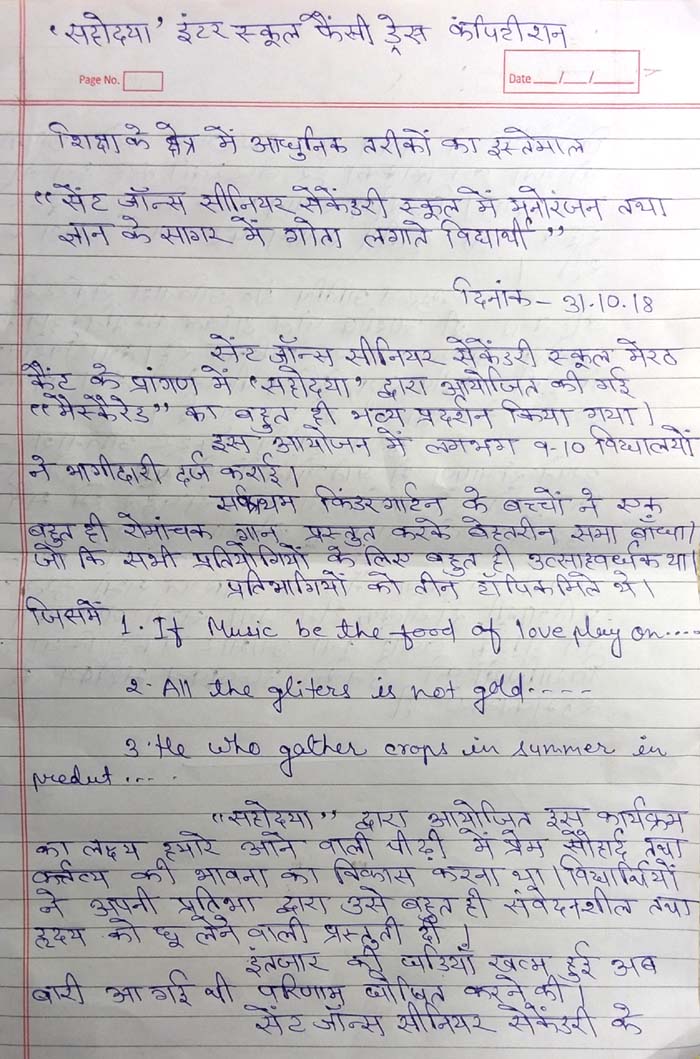 'सहोदया' इंटर स्कूल फैंसी ड्रेस कंपिटीशन
Page No.
Date ___/___/___
शिक्षा के क्षेत्र में आधुनिक तरीकों का इस्तेमाल
“सेंट जॉन्स सीनियर सेकेंडरी स्कूल में मनोरंजन तथा
ज्ञान के सागर में गोता लगाते विद्यार्थी”
दिनांक - 31.10.18
सेंट जॉन्स सीनियर सेकेंडरी स्कूल मेरठ
कैंट के प्रांगण में 'सहोदया' द्वारा आयोजित की गई
“मैस्केरेड” का बहुत ही भव्य प्रदर्शन किया गया।
इस आयोजन में लगभग 9-10 विद्यालयों
ने भागीदारी दर्ज कराई।
सर्वप्रथम किंडरगार्टन के बच्चों ने एक
बहुत ही रोमांचक गान प्रस्तुत करके बेहतरीन समा बाँधा।
जो कि सभी प्रतियोगियों के लिए बहुत ही उत्साहवर्धक था।
प्रतिभागियों को तीन टॉपिक मिले थे।
जिसमें 1. If Music be the food of love play on....
2. All the gliters is not gold.....
3. He who gather crops in summer in
predut....
“सहोदया” द्वारा आयोजित इस कार्यक्रम
का लक्ष्य हमारे आने वाली पीढ़ी में प्रेम सौहार्द तथा
कर्त्तव्य की भावना का विकास करना था। विद्यार्थियों
ने अपनी प्रतिभा द्वारा उसे बहुत ही संवेदनशील तथा
हृदय को छू लेने वाली प्रस्तुती दी।
इंतजार की घडियाँ खत्म हुई अब
बारी आ गई थी परिणाम घोषित करने की।
सेंट जॉन्स सीनियर सेकेंडरी के